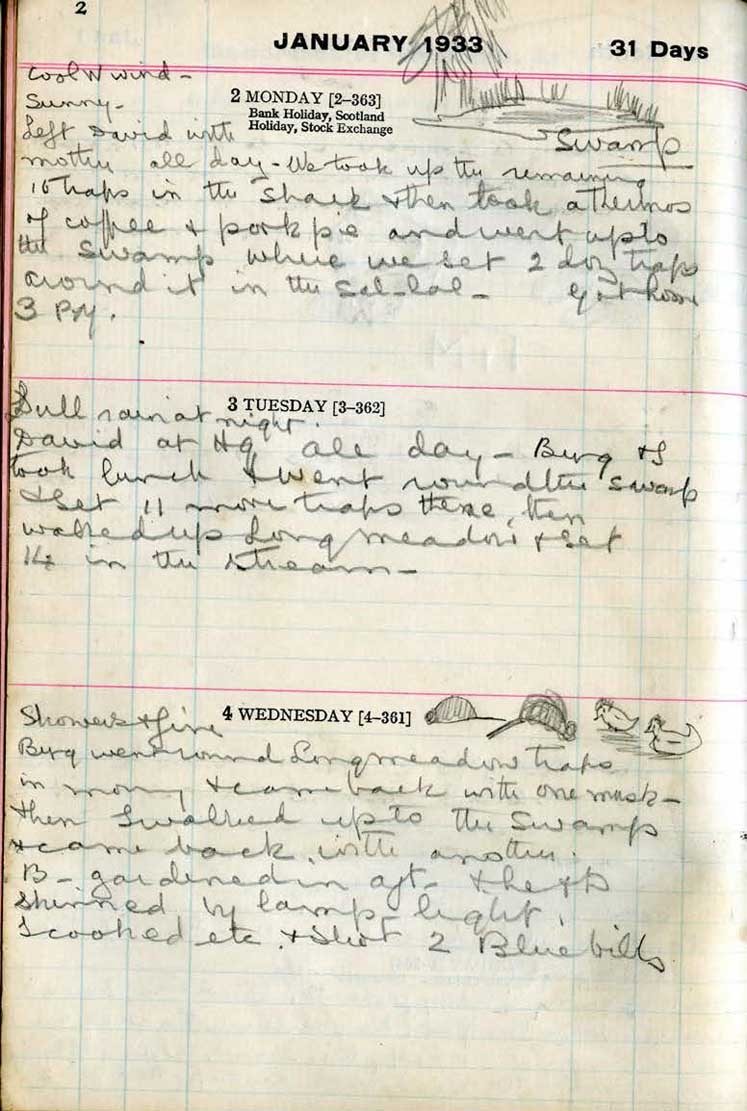 2
JANUARY 1933
31 Days
Cool W wind -
Sunny -
2 MONDAY [2–363]
Bank Holiday, Scotland
Holiday, Stock Exchange
Swamp
Left David with
mother all day - We took up the remaining
16 traps in the Shack & then took a Thermos
of coffee & pork pie and went up to
the Swamp where we set 2 doz traps
around it in the Sal-lal - Got home
3 PM.
3 TUESDAY [3–362]
Dull rain at night.
David at HQ all day - Burg & I
took lunch & went round the swamp
& set 11 more traps there, then
walked up Longmeadow & set
14 in the stream -
4 WEDNESDAY [4–361]
Showers & fine
Burg went round Longmeadow traps
in morng & came back with one musk -
then I walked up to the Swamp
& came back with another.
B - gardened in aft - & he & D
skinned by lamp-light.
I cooked etc. & Shot 2 Blue bills